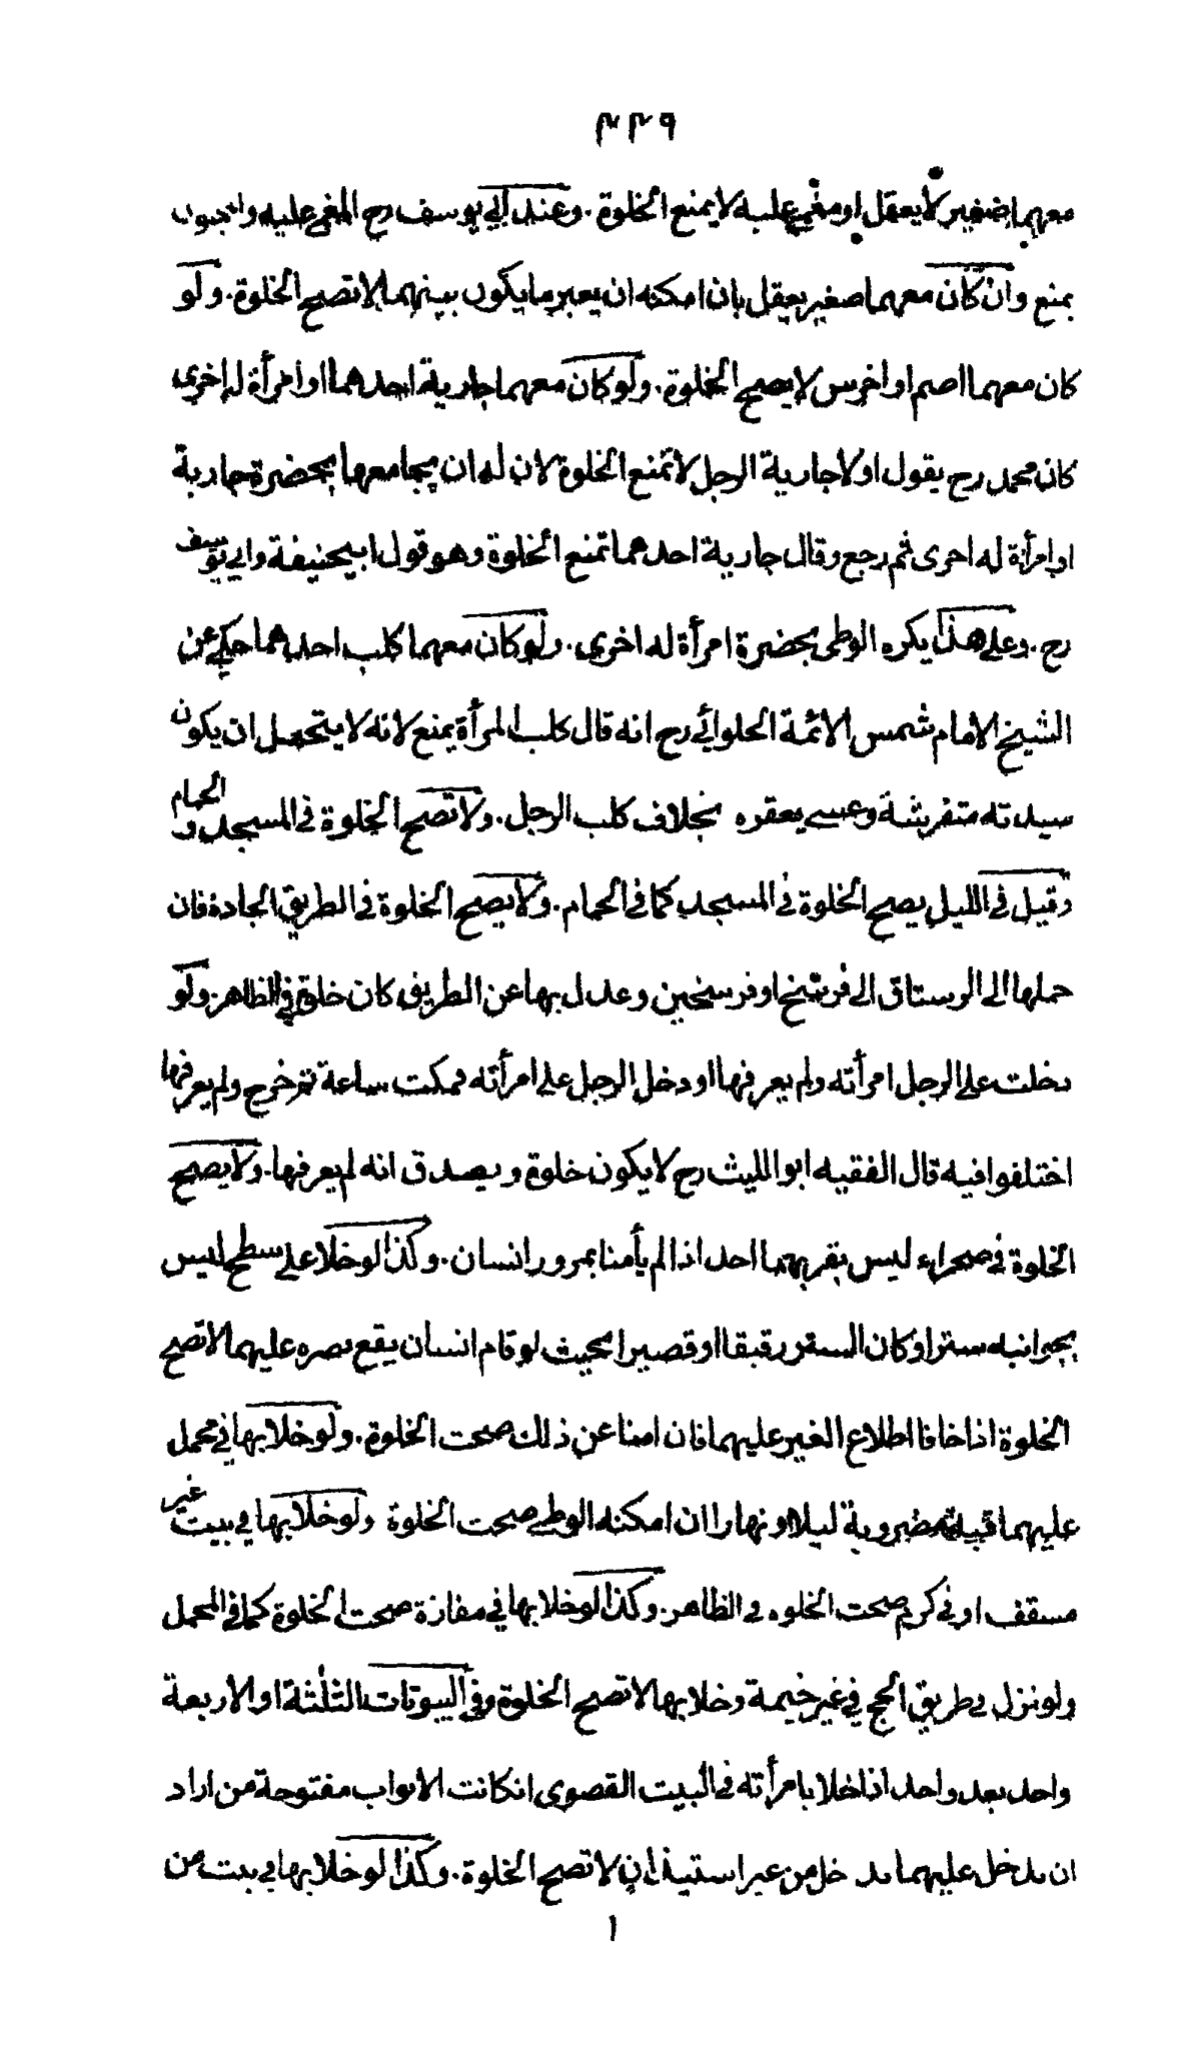 ٣٣٩
معهما صغير لا يعقل او مغمى عليه لا يمنع الخلوة . وعند ابي يوسف رح المغمى عليه والمجنون
يمنع وان كان معهما صغير يعقل بان امكنه ان يعبر ما يكون بينهما لا تصح الخلوة . ولو
كان معهما اصم او اخرس لا يصح الخلوة . ولو كان معهما جارية احدهما او امرأة له اخرى
كان محمد رح يقول اولا جارية الرجل لا تمنع الخلوة لان له ان يجامعها بحضرة جارية
او امرأة له اخرى ثم رجع وقال جارية احدهما تمنع الخلوة وهو قول ابيحنيفة وابي يوسف
رح . وعلى هذا يكره الوطى بحضرة امرأة له اخرى . ولو كان معهما كلب احدهما حكي عن
الشيخ الامام شمس الائمة الحلوائي رح انه قال كلب المرأة يمنع لانه لا يتحمل ان يكون
سيدته متفرشة وعسى يعقره بخلاف كلب الرجل . ولا تصح الخلوة في المسجد و الحمام
وقيل في الليل يصح الخلوة في المسجد كما في الحمام . ولا يصح الخلوة في الطريق الجادة فان
حملها الى الرستاق الى فرسخ او فرسخين وعدل بها عن الطريق كان خلوة في الظاهر . ولو
دخلت على الرجل امرأته ولم يعرفها او دخل الرجل على امرأته فمكث ساعة ثم خرج ولم يعرفها
اختلفوا فيه قال الفقيه ابو الليث رح لا يكون خلوة ويصدق انه لم يعرفها . ولا يصح
الخلوة في صحراء ليس بقربهما احد اذا لم يأمنا بمرور انسان . وكذا لو خلا على سطح ليس
بجوانبه ستر او كان الستر رقيقا او قصيرا بحيث لو قام انسان يقع بصره عليهما لا تصح
الخلوة اذا خافا اطلاع الغير عليهما فان امنا عن ذلك صحت الخلوة . ولو خلا بها في محمل
عليهما قبة مضروبة ليلا او نهارا ان امكنه الوطى صحت الخلوة ولو خلا بها في بيت غير
مسقف او في كرم صحت الخلوه في الظاهر . وكذا لو خلا بها في مفازة صحت الخلوة كما في المحمل
ولو نزل في طريق الحج في غير خيمة وخلا بها لا تصح الخلوة وفي البيوتات الثلثة او الاربعة
واحد بعد واحد اذا خلا بامرأته في البيت القصوى انكانت الابواب مفتوحة من اراد
ان يدخل عليهما يدخل من غير استيذان لا تصح الخلوة . وكذا لو خلا بها في بيت من
١